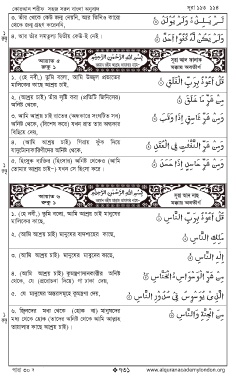 কোরআন শরীফ সহজ সরল বাংলা অনুবাদ
সূরা ১১৩ ১১৪
৩. তাঁর থেকে কেউ জন্ম নেয়নি, আর তিনিও কারো থেকে জন্ম গ্রহণ করেননি,
لَمْ يَلِدْ وَلَمْ يُولَدْ
৪. আর তাঁর সমতুল্য দ্বিতীয় কেউ নেই।
وَلَمْ يَكُنْ لَهُ كُفُوًا أَحَدٌ
আয়াত ৫
রুকু ১
بِسْمِ اللهِ الرَّحْمٰنِ الرَّحِيْمِ
সূরা আল ফালাক
মক্কায় অবতীর্ণ
১. (হে নবী,) তুমি বলো, আমি উজ্জ্বল প্রভাতের মালিকের কাছে আশ্রয় চাই,
قُلْ أَعُوذُ بِرَبِّ الْفَلَقِ
২. (আশ্রয় চাই) তাঁর সৃষ্টি করা (প্রতিটি জিনিসের) অনিষ্ট থেকে,
مِنْ شَرِّ مَا خَلَقَ
৩. আমি আশ্রয় চাই রাতের (অন্ধকারে সংঘটিত সব) অনিষ্ট থেকে, (বিশেষ করে) যখন রাত তার অন্ধকার বিছিয়ে দেয়,
وَمِنْ شَرِّ غَاسِقٍ إِذَا وَقَبَ
৪. (আমি আশ্রয় চাই) গিরায় ফুঁক দিয়ে যাদুটোনাকারিণীদের অনিষ্ট থেকে,
وَمِنْ شَرِّ النَّفّٰثٰتِ فِي الْعُقَدِ
৫. হিংসুক ব্যক্তির (হিংসার) অনিষ্ট থেকেও (আমি তোমার আশ্রয় চাই) যখন সে হিংসা করে।
وَمِنْ شَرِّ حَاسِدٍ إِذَا حَسَدَ
আয়াত ৬
রুকু ১
بِسْمِ اللهِ الرَّحْمٰنِ الرَّحِيْمِ
সূরা আন নাস
মক্কায় অবতীর্ণ
১. (হে নবী,) তুমি বলো, আমি আশ্রয় চাই মানুষের মালিকের কাছে,
قُلْ أَعُوذُ بِرَبِّ النَّاسِ
২. (আমি আশ্রয় চাই) মানুষের বাদশাহের কাছে,
مَلِكِ النَّاسِ
৩. (আমি আশ্রয় চাই) মানুষের মাবুদের কাছে,
إِلٰهِ النَّاسِ
৪. (আমি আশ্রয় চাই) কুমন্ত্রণাদানকারীর অনিষ্ট থেকে, যে (প্ররোচনা দিয়েই) গা ঢাকা দেয়,
مِنْ شَرِّ الْوَسْوَاسِ الْخَنَّاسِ
৫. যে মানুষের অন্তরসমূহে কুমন্ত্রণা দেয়,
الَّذِي يُوَسْوِسُ فِي صُدُورِ النَّاسِ
৬. জ্বিনদের মধ্য থেকে (হোক বা) মানুষদের মধ্য থেকে
مِنَ الْجِنَّةِ وَالنَّاسِ
পারা ৩০
৭৩১
www.alquranacademylondon.org